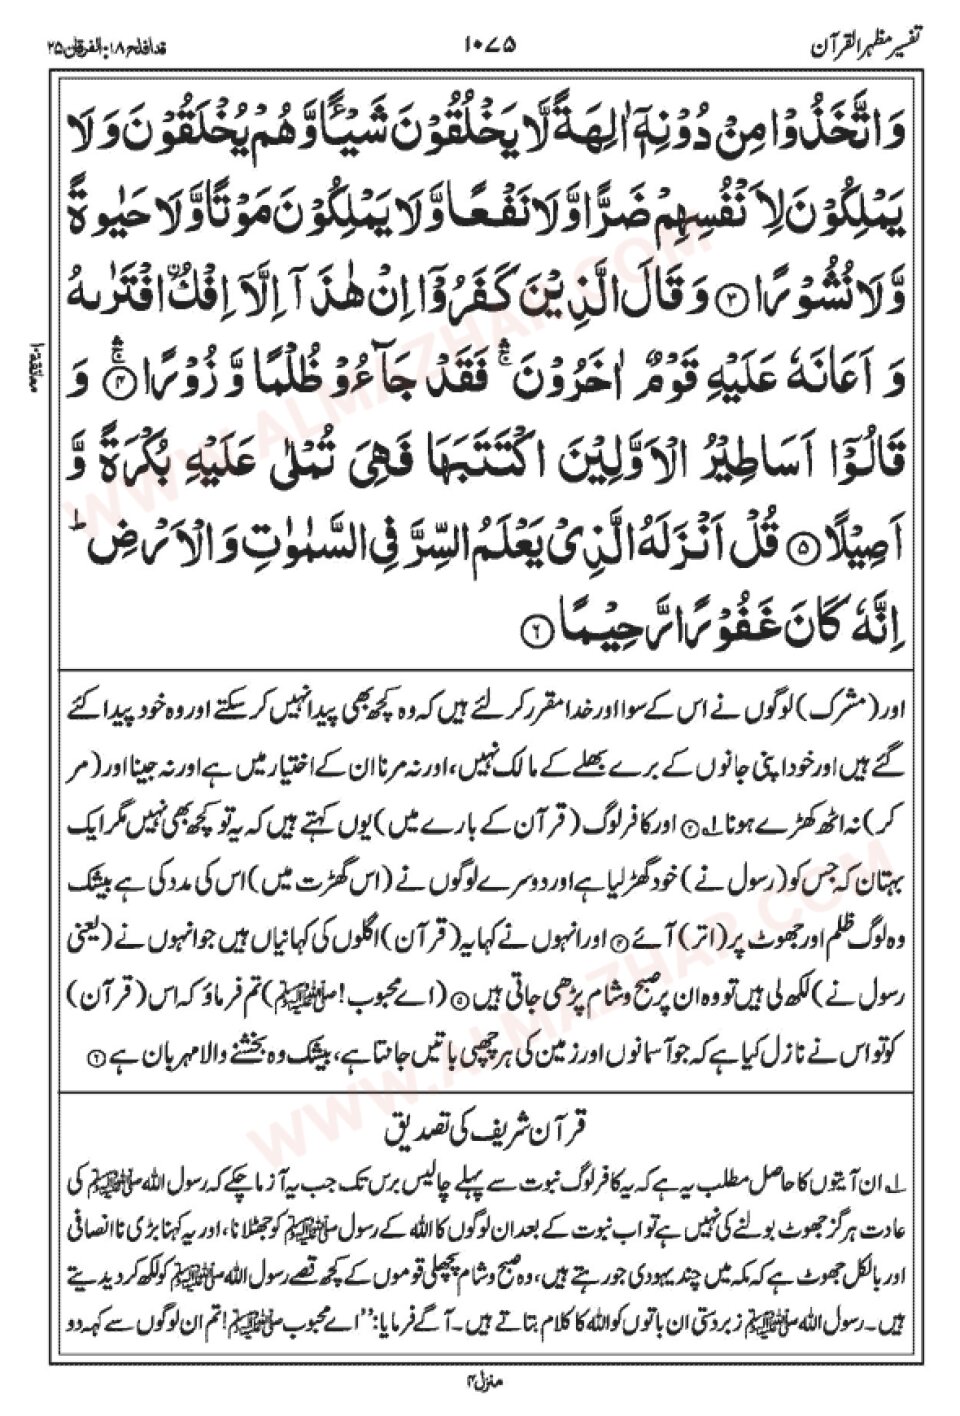 تفسیر مظہر القرآن
۱۰۷۵
قد افلح ۱۸: الفرقان ۲۵
وَاتَّخَذُوْا مِنْ دُوْنِهٖٓ اٰلِهَةً لَّا يَخْلُقُوْنَ شَيْـًٔا وَّهُمْ يُخْلَقُوْنَ وَلَا
يَمْلِكُوْنَ لِاَنْفُسِهِمْ ضَرًّا وَّلَا نَفْعًا وَّلَا يَمْلِكُوْنَ مَوْتًا وَّلَا حَيٰوةً
وَّلَا نُشُوْرًا ۳ وَقَالَ الَّذِيْنَ كَفَرُوْٓا اِنْ هٰذَآ اِلَّآ اِفْكُ ۨ افْتَرٰىهُ
وَ اَعَانَهٗ عَلَيْهِ قَوْمٌ اٰخَرُوْنَ ۛۚ فَقَدْ جَآءُوْ ظُلْمًا وَّ زُوْرًا ۛۚ ۴ وَ
معانقة ۱۰
قَالُوْٓا اَسَاطِيْرُ الْاَوَّلِيْنَ اكْتَتَبَهَا فَهِيَ تُمْلٰى عَلَيْهِ بُكْرَةً وَّ
اَصِيْلًا ۵ قُلْ اَنْزَلَهُ الَّذِيْ يَعْلَمُ السِّرَّ فِي السَّمٰوٰتِ وَالْاَرْضِ ؕ
اِنَّهٗ كَانَ غَفُوْرًا رَّحِيْمًا ۶
اور (مشرک) لوگوں نے اس کے سوا اور خدا مقرر کر لئے ہیں کہ وہ کچھ بھی پیدا نہیں کر سکتے اور وہ خود پیدا کئے
گئے ہیں اور خود اپنی جانوں کے برے بھلے کے مالک نہیں، اور نہ مرنا ان کے اختیار میں ہے اور نہ جینا اور (مر
کر) نہ اٹھ کھڑے ہونا ۱؎ ۳ اور کافر لوگ (قرآن کے بارے میں) یوں کہتے ہیں کہ یہ تو کچھ بھی نہیں مگر ایک
بہتان کہ جس کو (رسول نے) خود گھڑ لیا ہے اور دوسرے لوگوں نے (اس گھڑت میں) اس کی مدد کی ہے بیشک
وہ لوگ ظلم اور جھوٹ پر (اتر) آئے ۴ اور انہوں نے کہا یہ (قرآن) اگلوں کی کہانیاں ہیں جو انہوں نے (یعنی
رسول نے) لکھ لی ہیں تو وہ ان پر صبح و شام پڑھی جاتی ہیں ۵ (اے محبوب! ﷺ) تم فرماؤ کہ اس (قرآن)
کو تو اس نے نازل کیا ہے کہ جو آسمانوں اور زمین کی ہر چھپی باتیں جانتا ہے، بیشک وہ بخشنے والا مہربان ہے ۶
قرآن شریف کی تصدیق
۱؎ ان آیتوں کا حاصل مطلب یہ ہے کہ یہ کافر لوگ نبوت سے پہلے چالیس برس تک جب یہ آزما چکے کہ رسول اللہ ﷺ کی
عادت ہرگز جھوٹ بولنے کی نہیں ہے تو اب نبوت کے بعد ان لوگوں کا اللہ کے رسول ﷺ کو جھٹلانا، اور یہ کہنا بڑی نا انصافی
اور بالکل جھوٹ ہے کہ مکہ میں چند یہودی جو رہتے ہیں، وہ صبح و شام پچھلی قوموں کے کچھ قصے رسول اللہ ﷺ کو لکھ کر دیدیتے
ہیں۔ رسول اللہ ﷺ زبردستی ان باتوں کو اللہ کا کلام بتاتے ہیں۔ آگے فرمایا: "اے محبوب ﷺ! تم ان لوگوں سے کہدو
منزل ۴
WWW.ALMAZHAR.COM
WWW.ALMAZHAR.COM